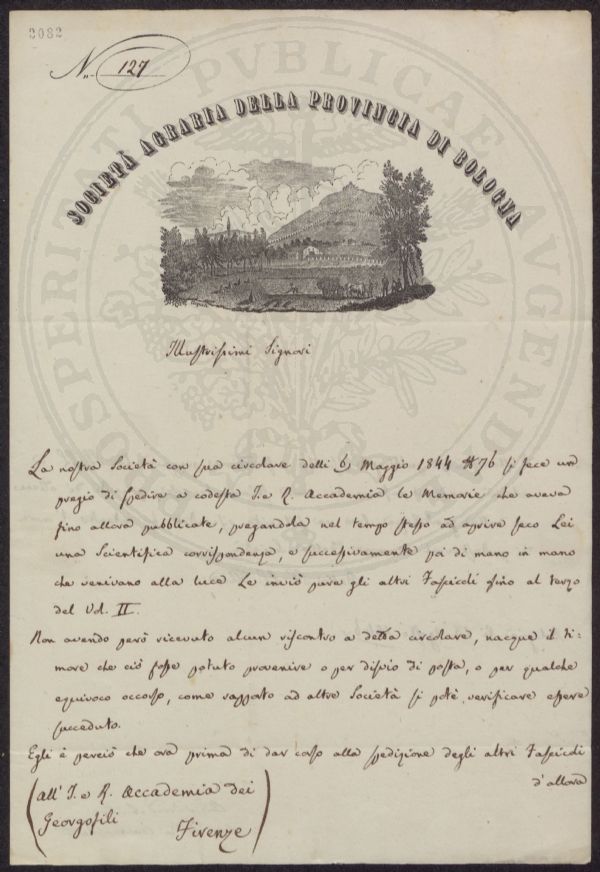 2082
N. 127
SOCIETÀ AGRARIA DELLA PROVINCIA DI BOLOGNA
PROSPERITATI PUBLICAE AUGENDAE
Illustrissimi Signori
La nostra Società con sua circolare delli 6 Maggio 1844 N 76 si fece un
pregio di spedire a codesta I. e R. Accademia le Memorie che aveva
fino allora pubblicate, pregandola nel tempo stesso ad aprire seco Lei
una Scientifica corrispondenza, e successivamente poi di mano in mano
che venivano alla luce Le inviò pure gli altri Fascicoli fino al terzo
del Vol. II.
Non avendo però ricevuto alcun riscontro a detta circolare, nacque il ti-
more che ciò fosse potuto provenire o per disvio di posta, o per qualche
equivoco occorso, come rapporto ad altre Società si potè verificare essere
succeduto.
Egli è perciò che ora prima di dar corso alla spedizione degli altri Fascicoli
d'allora
all' I. e R. Accademia dei
Georgofili
Firenze